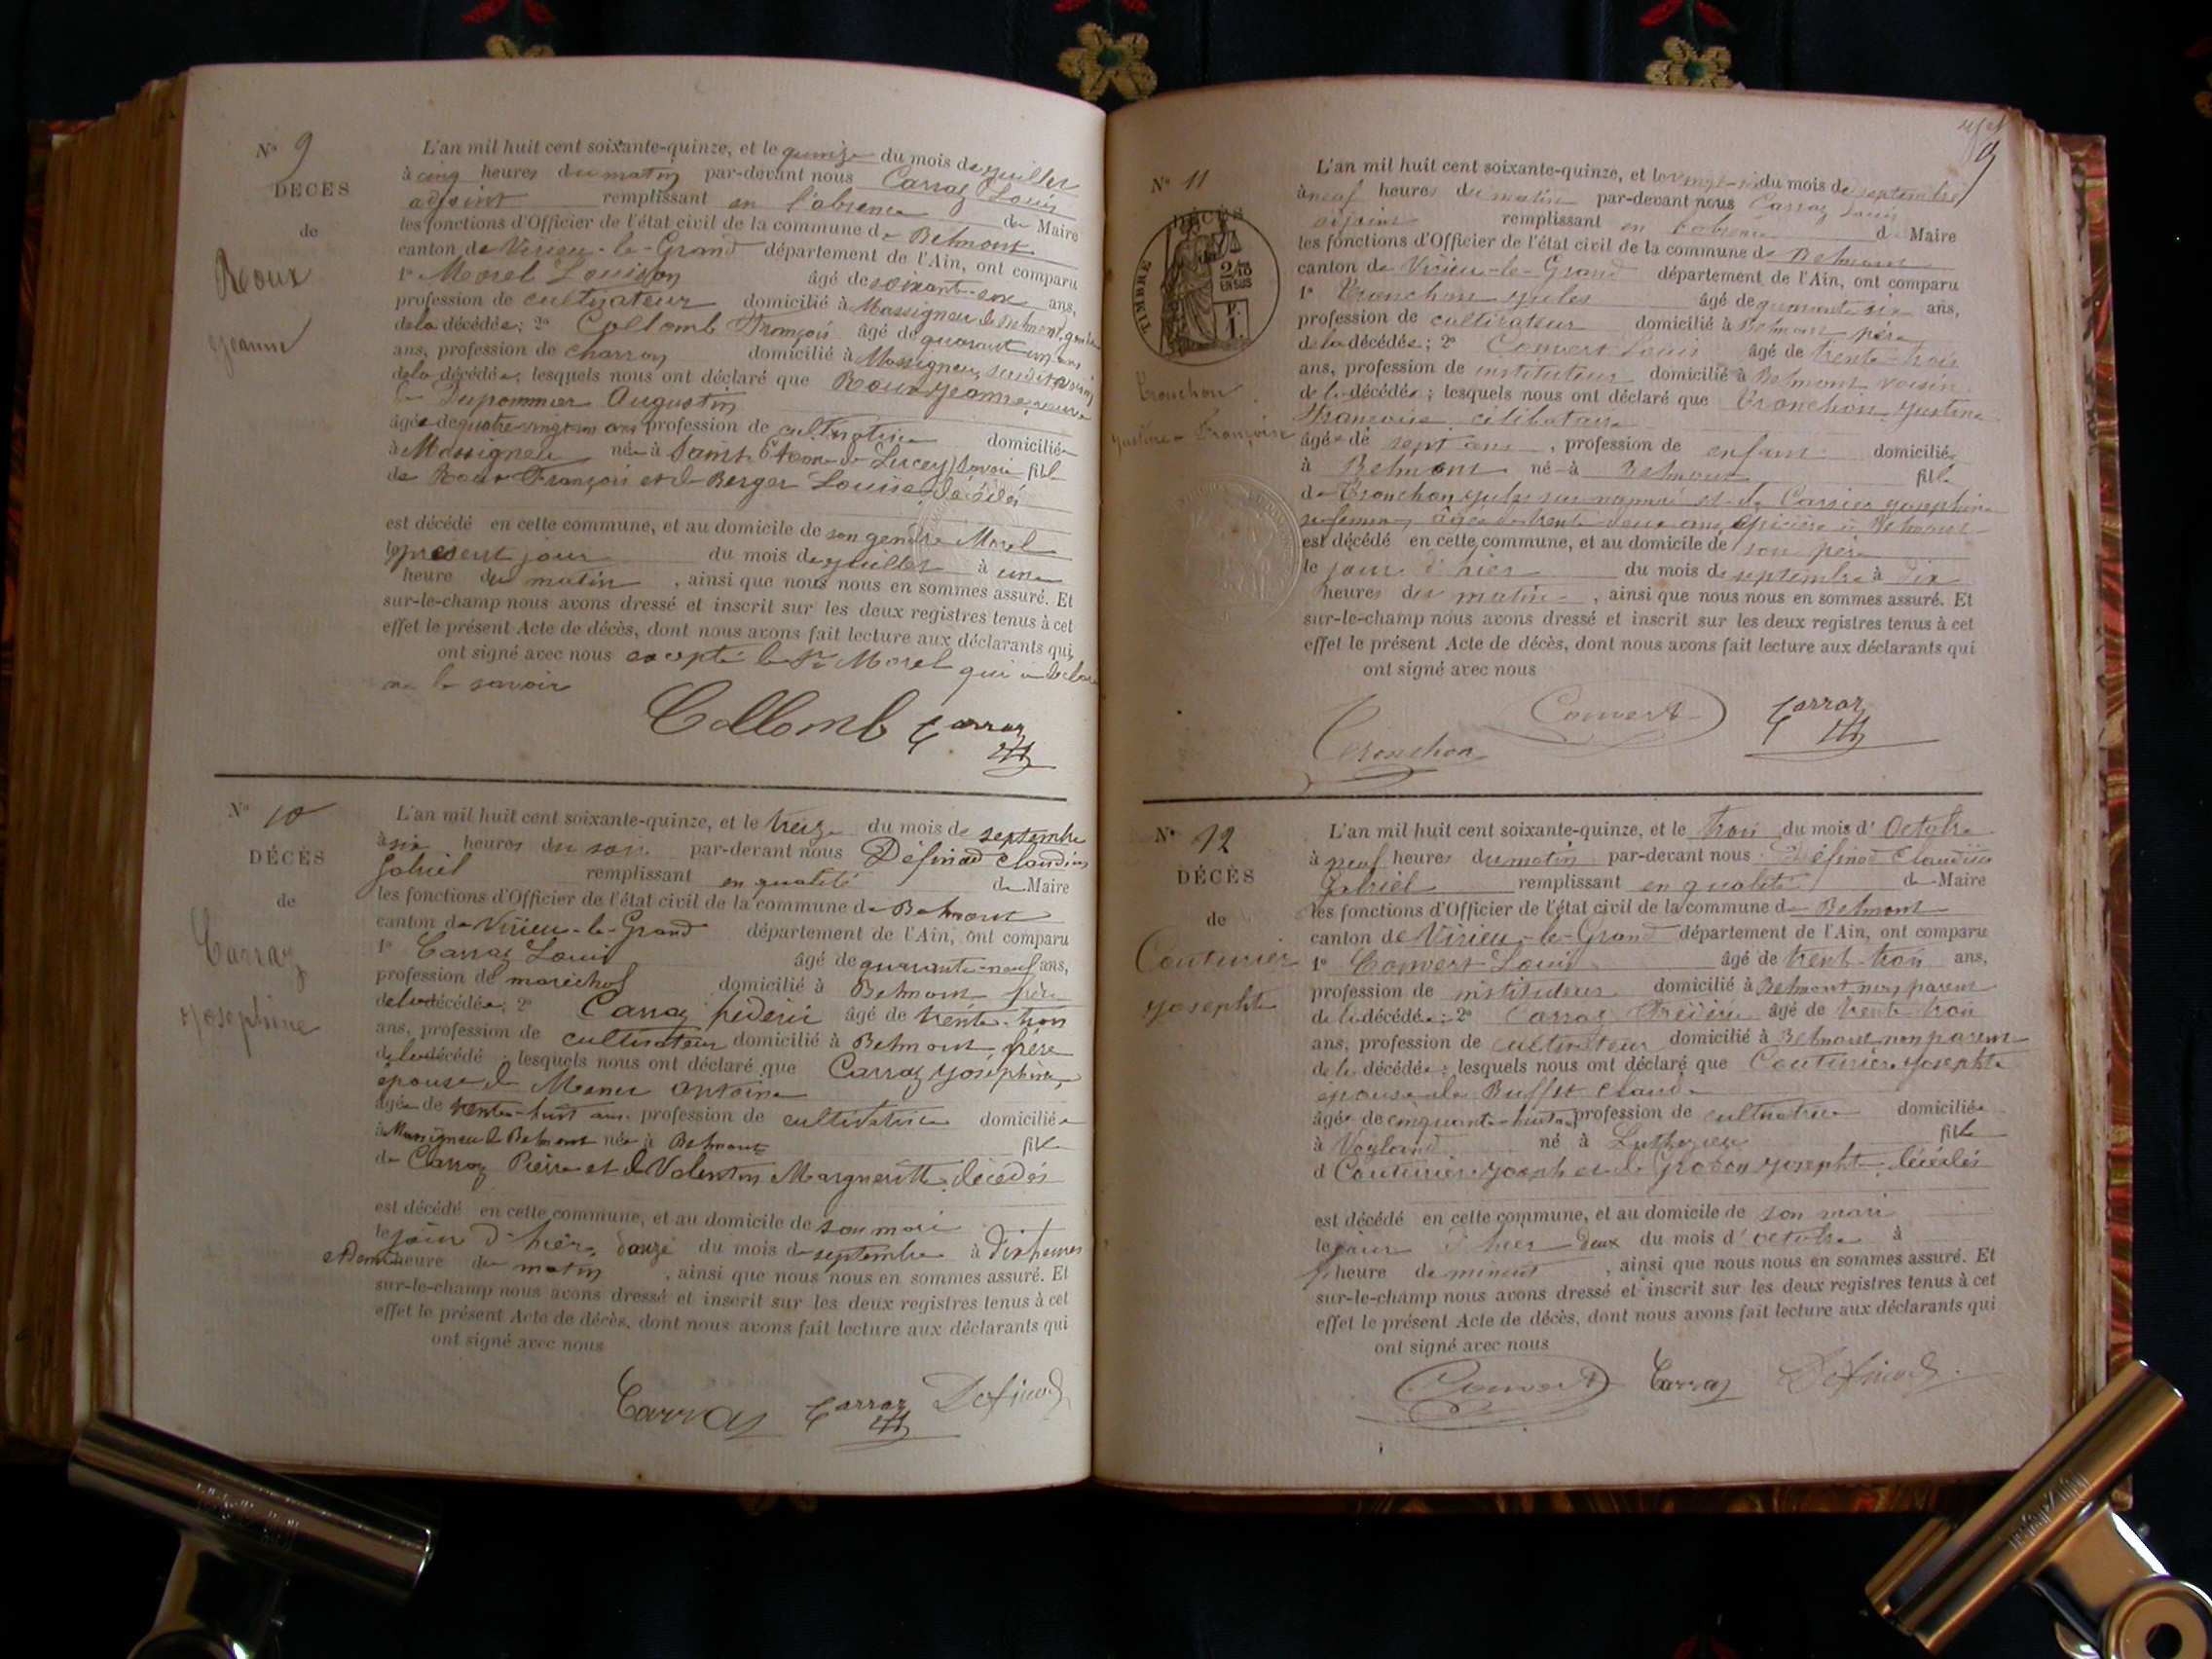 N° 9
DÉCÈS
de
Roux
Jeanne
L'an mil huit cent soixante-quinze, et le quinze du mois de juillet
à cinq heures du matin par-devant nous Carraz Louis
adjoint remplissant en l'absence du Maire
les fonctions d'Officier de l'état civil de la commune de Belmont
canton de Virieu-le-Grand département de l'Ain, ont comparu
1° Morel Louison âgé de soixante-six ans,
profession de cultivateur domicilié à Massigneu de Belmont, gendre
de la décédée; 2° Collomb François âgé de quarant-un ans
ans, profession de charron domicilié à Massigneu, susdit, voisin
de la décédée; lesquels nous ont déclaré que Roux Jeanne, veuve
de Dupommier Augustin
âgée de quatre-vingt-un ans profession de cultivatrice domiciliée
à Massigneu née à Saint-Etienne de Lucey, Savoie fille
de Roux François et de Berger Louise, décédés
est décédé en cette commune, et au domicile de son gendre Morel
le présent jour du mois de juillet à une
heure du matin, ainsi que nous nous en sommes assuré. Et
sur-le-champ nous avons dressé et inscrit sur les deux registres tenus à cet
effet le présent Acte de décès, dont nous avons fait lecture aux déclarants qui
ont signé avec nous excepté le Sr Morel qui a déclaré
ne le savoir
Collomb Carraz
N° 10
DÉCÈS
de
Carraz
Josephine
L'an mil huit cent soixante-quinze, et le treize du mois de septembre
à six heures du soir par-devant nous Définod Claudius
Gabriel remplissant en qualité de Maire
les fonctions d'Officier de l'état civil de la commune de Belmont
canton de Virieu-le-Grand département de l'Ain, ont comparu
1° Carraz Louis âgé de quarante-neuf ans,
profession de maréchal domicilié à Belmont, frère
de la décédée; 2° Carraz fréderic âgé de trente-trois
ans, profession de cultivateur domicilié à Belmont, frère
de la décédé; lesquels nous ont déclaré que Carraz Joséphine,
épouse de Antoine
âgée de trente-huit ans profession de cultivatrice domiciliée
à Massigneu de Belmont née à Belmont fille
de Carraz Pierre et de Valentin Margueritte, décédés
est décédé en cette commune, et au domicile de son mari
le jour d'hier, douze du mois de septembre à dix heures
et demie heure du matin, ainsi que nous nous en sommes assuré. Et
sur-le-champ nous avons dressé et inscrit sur les deux registres tenus à cet
effet le présent Acte de décès, dont nous avons fait lecture aux déclarants qui
ont signé avec nous
Carraz Carraz Définod
9
N° 11
DÉCÈS
TIMBRE
2/10
EN SUS
Tronchon
Justine Françoise
L'an mil huit cent soixante-quinze, et le du mois de septembre
à neuf heures du matin par-devant nous Carraz Louis
adjoint remplissant en l'absence du Maire
les fonctions d'Officier de l'état civil de la commune de Belmont
canton de Virieu-le-Grand département de l'Ain, ont comparu
1° Tronchon Jules âgé de quarante six ans,
profession de cultivateur domicilié à Belmont père
de la décédée; 2° Convert Louis âgé de trente-trois
ans, profession de instituteur domicilié à Belmont voisin
de la décédée; lesquels nous ont déclaré que Tronchon Justine
Françoise, célibataire
âgée de sept ans, profession de enfant domiciliée
à Belmont né à Belmont fille
de Tronchon Jules sus-nommé et de Carrier Josephine
sa femme, âgée de trente deux ans, épicière à Belmont
est décédé en cette commune, et au domicile de son père
le jour d'hier du mois de septembre à dix
heures du matin, ainsi que nous nous en sommes assuré. Et
sur-le-champ nous avons dressé et inscrit sur les deux registres tenus à cet
effet le présent Acte de décès, dont nous avons fait lecture aux déclarants qui
ont signé avec nous
Tronchon Convert Carraz
N° 12
DÉCÈS
de
Couturier
Josephte
L'an mil huit cent soixante-quinze, et le trois du mois d'Octobre
à neuf heures du matin par-devant nous Définod Claudius
Gabriel remplissant en qualité de Maire
les fonctions d'Officier de l'état civil de la commune de Belmont
canton de Virieu-le-Grand département de l'Ain, ont comparu
1° Convert Louis âgé de trente-trois ans,
profession de instituteur domicilié à Belmont non parent
de la décédée; 2° Carraz Fréderic âgé de trente trois
ans, profession de cultivateur domicilié à Belmont non parent
de la décédée; lesquels nous ont déclaré que Couturier Josephte
épouse de Buffet Claude
âgée de cinquante-huit ans profession de cultivatrice domiciliée
à Vogland né à Luthezieu fille
d Couturier Joseph et de Josephte, décédés
est décédé en cette commune, et au domicile de son mari
le jour d'hier deux du mois d'octobre à
heure de minuit, ainsi que nous nous en sommes assuré. Et
sur-le-champ nous avons dressé et inscrit sur les deux registres tenus à cet
effet le présent Acte de décès, dont nous avons fait lecture aux déclarants qui
ont signé avec nous
Convert Carraz Définod